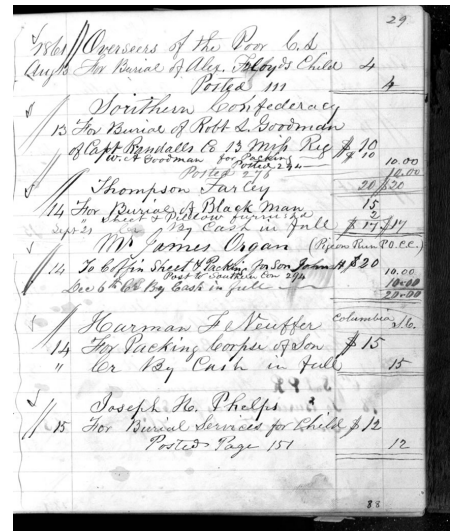 29
1861 Overseers of the Poor C.S
Aug 13 For Burial of Alex. Floyds Child 4
Posted 111 4
Southern Confederacy
13 For Burial of Robt L. Goodman
of Capt Randalls Co 13 Miss Reg $ 10
W. A Goodman for Packing $ 10 10.00
Posted 294 10.00
Posted 276
Thompson Farley 20 $20
14 For Burial of Black Man 15
" Sheet & Pillow furnished 2
Sept 21 Cr By Cash in full $ 17 $17
Mr James Organ (Pigeon Run P.O. C.C.)
14 To Coffin Sheet & Packing for Son John H $ 20 10.00
Post to Southern Con 294 10.00
Dec 6th Cr By Cash in full 20.00
Harman F Neuffer Columbia S.C.
14 For Packing Corpse of Son $ 15
" Cr By Cash in full 15
Joseph H. Phelps
15 For Burial Services for Child $ 12
Posted Page 151 12
88